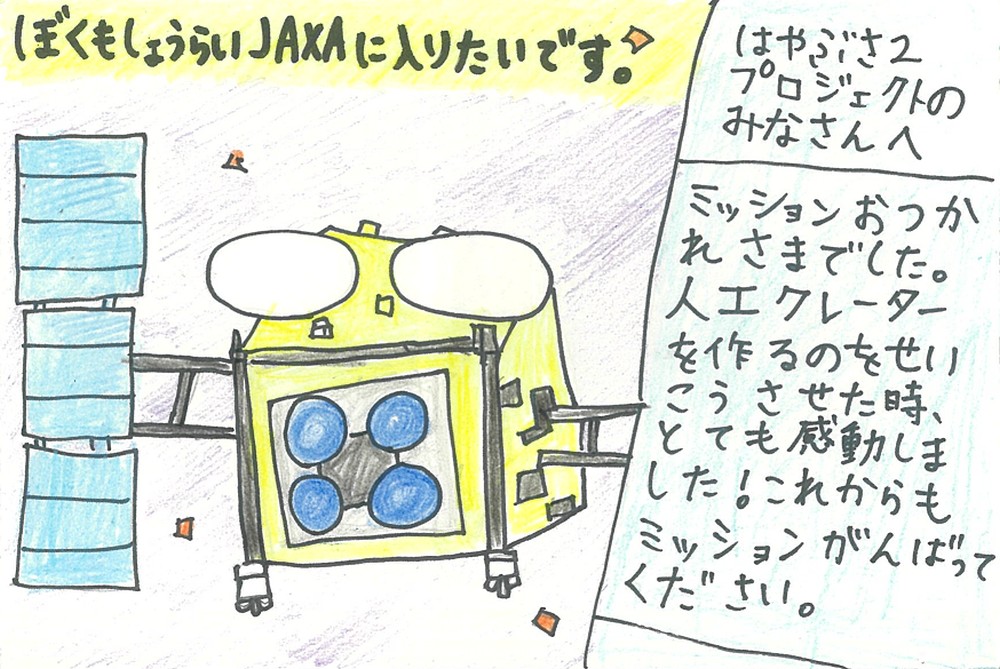 ぼくもしょうらいJAXAに入りたいです。
はやぶさ2
プロジェクトの
みなさんへ
ミッションおつか
れさまでした。
人工クレーター
を作るのをせい
こうさせた時、
とても感動しま
した!これからも
ミッションがんばって
ください。